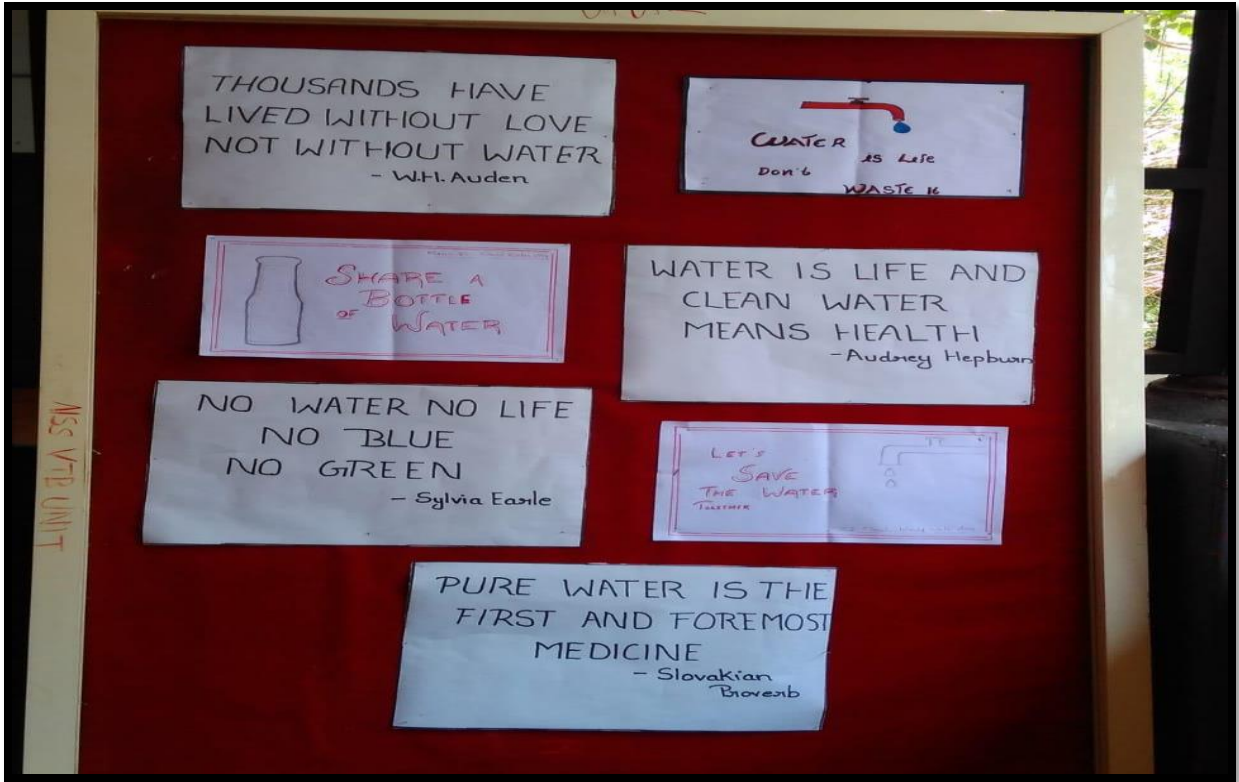 THOUSANDS HAVE
LIVED WITHOUT LOVE
NOT WITHOUT WATER
- W.H. Auden
WATER is Life
Don't WASTE it
SHARE A
BOTTLE
OF WATER
WATER IS LIFE AND
CLEAN WATER
MEANS HEALTH
- Audrey Hepburn
NO WATER NO LIFE
NO BLUE
NO GREEN
- Sylvia Earle
LET'S
SAVE
THE WATER
TOGETHER
PURE WATER IS THE
FIRST AND FOREMOST
MEDICINE
- Slovakian
Proverb
NSS VTB UNIT